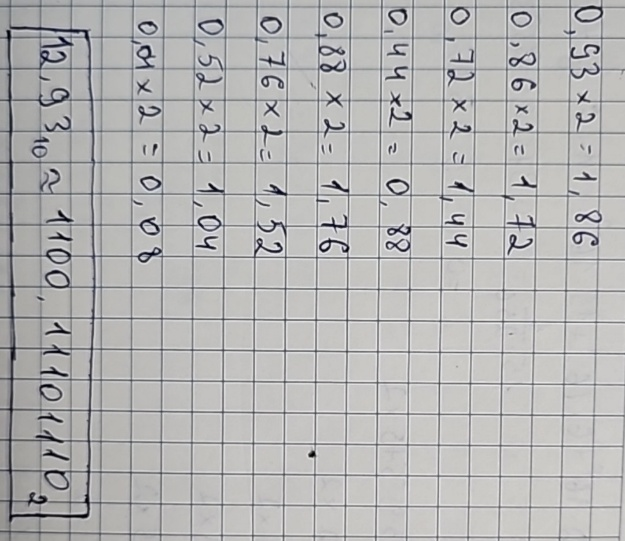 0,93 × 2 = 1,86
0,86 × 2 = 1,72
0,72 × 2 = 1,44
0,44 × 2 = 0,88
0,88 × 2 = 1,76
0,76 × 2 = 1,52
0,52 × 2 = 1,04
0,04 × 2 = 0,08
12,93₁₀ ≈ 1100,11101110₂